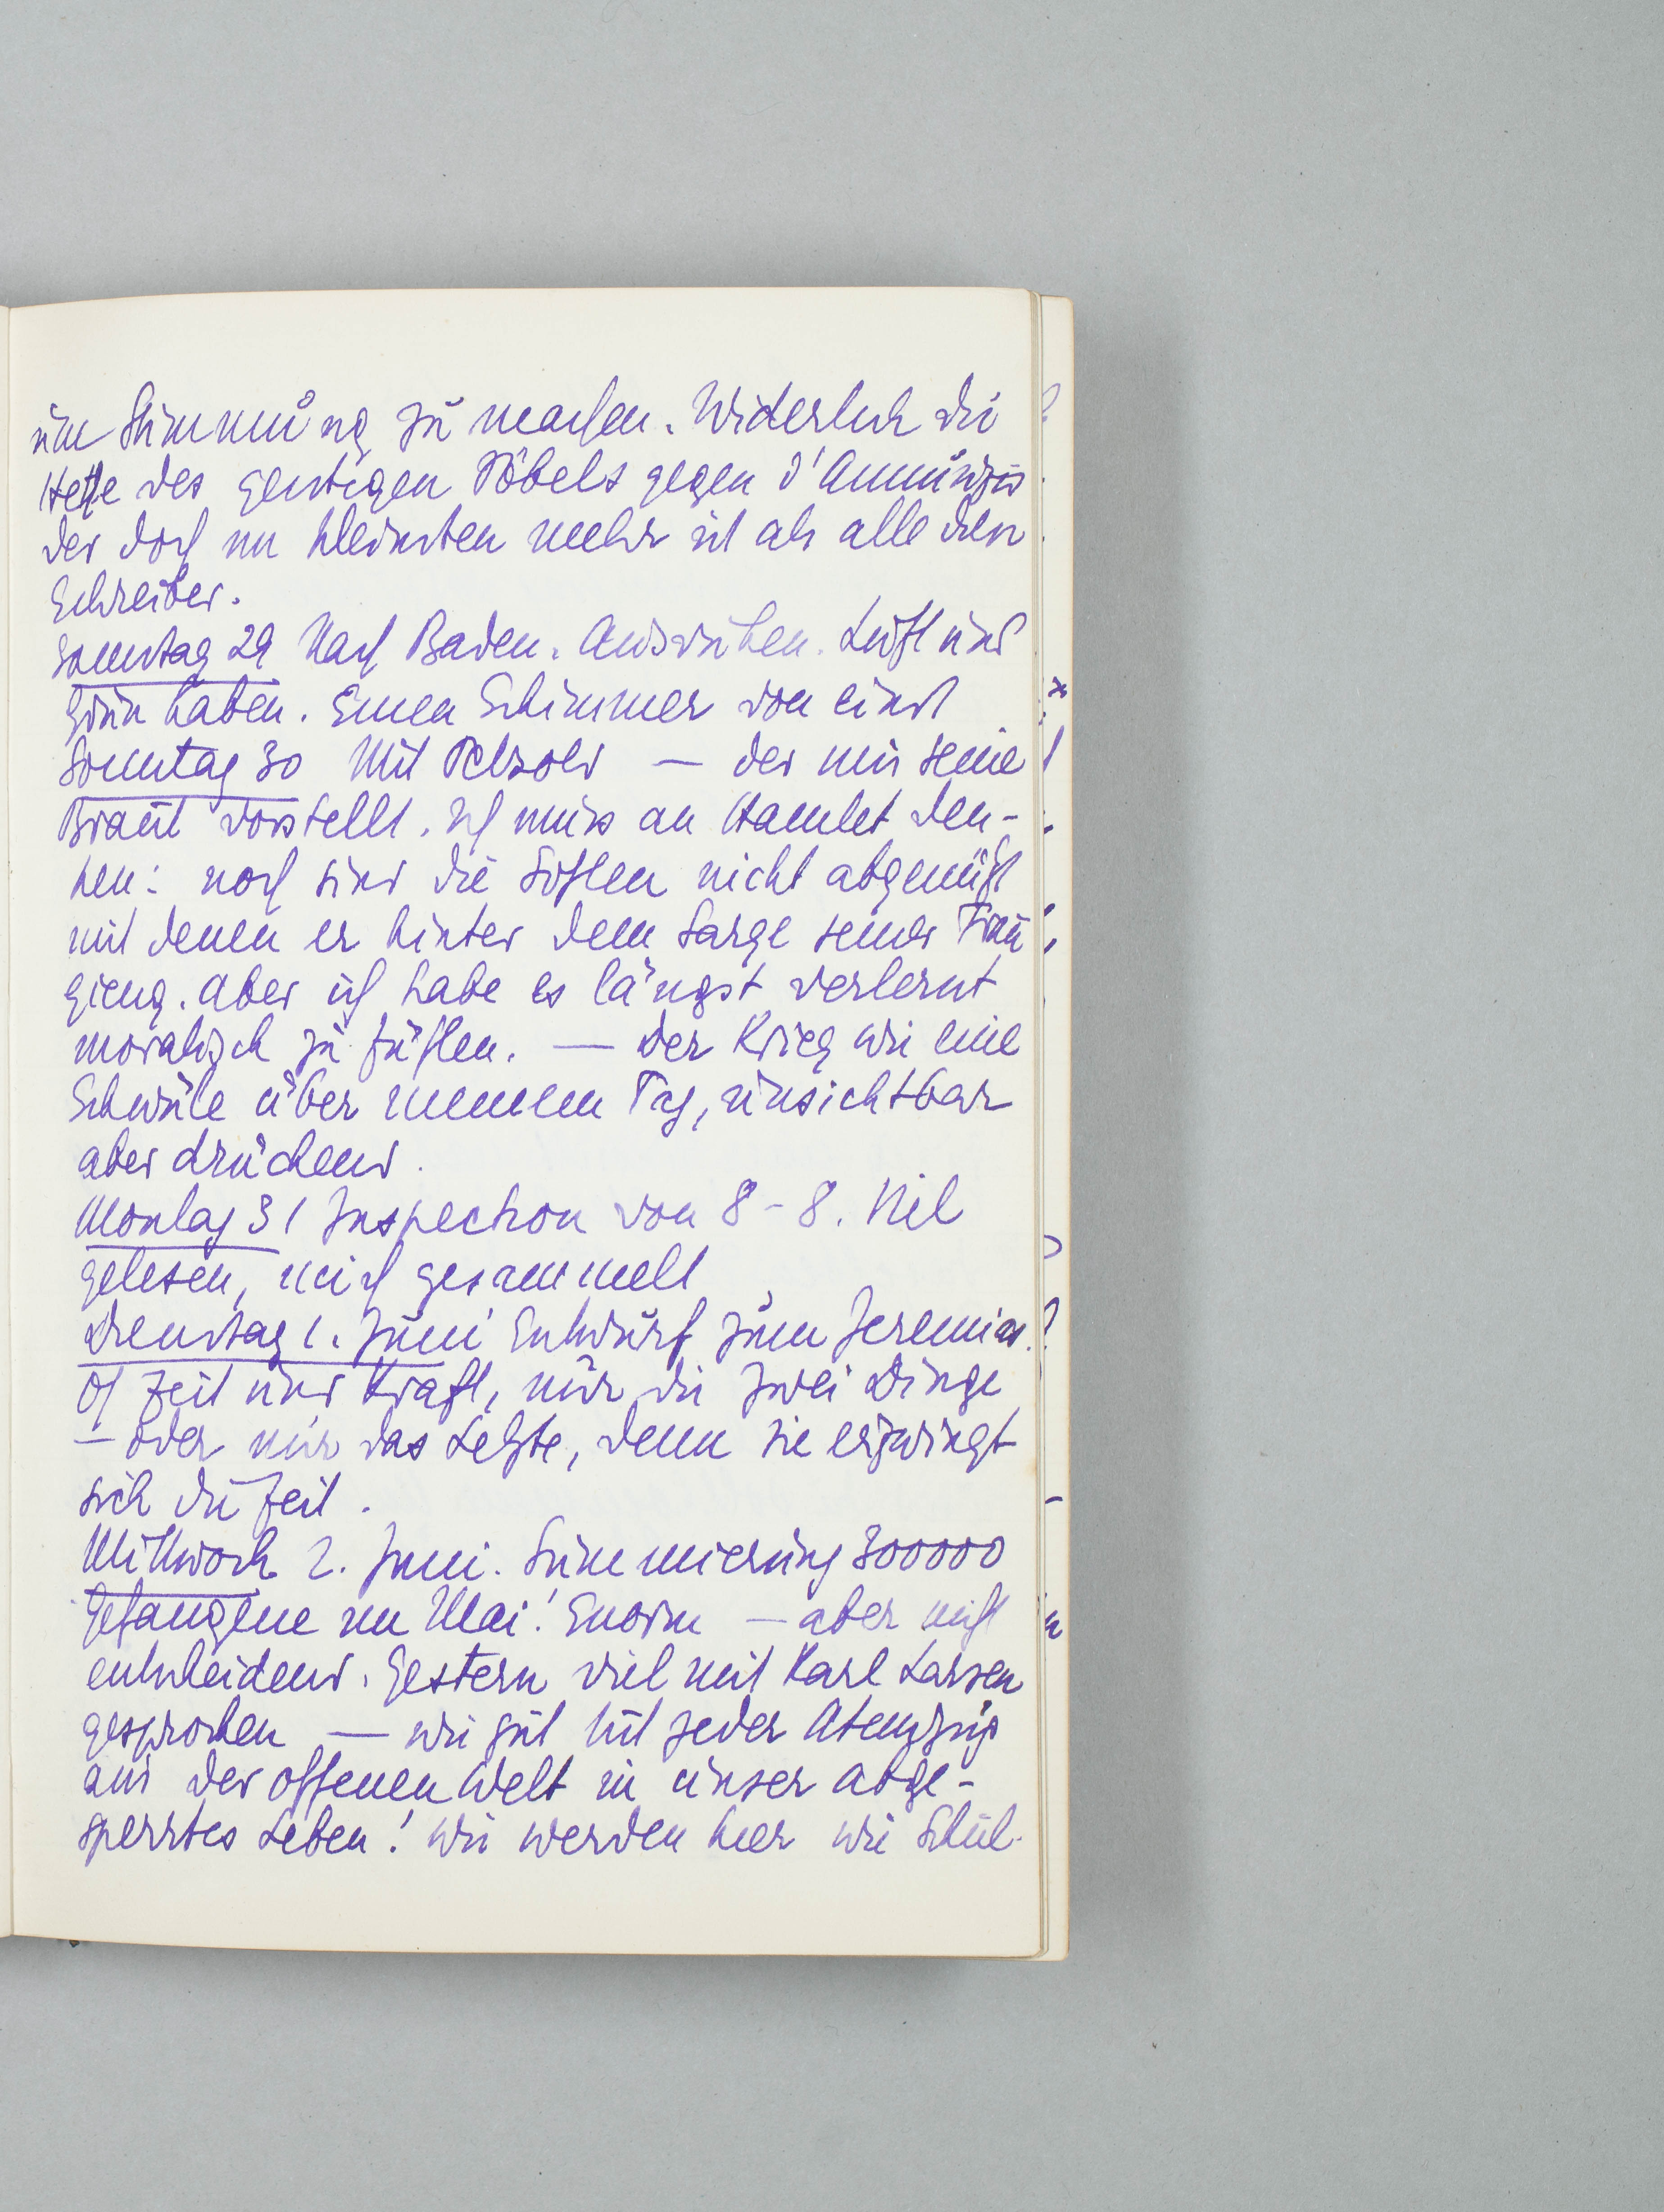 um Stimmung zu machen. Widerlich die
Hetze des geistigen Pöbels gegen d'Annunzio
der doch im kleinsten mehr ist als alle diese
Schreiber.
Samstag 29 Nach Baden. Ausruhen. Luft und
Grün haben. Einen Schimmer von einst
Sonntag 30 Mit Petzold — der mir seine
Braut vorstellt. Ich muss an Hamlet den-
ken: noch sind die Sohlen nicht abgenützt
mit denen er hinter dem Sarge seiner Frau
gieng. Aber ich habe es längst verlernt
moralisch zu fühlen. — Der Krieg wie eine
Schwüle über meinem Tag, unsichtbar
aber drückend.
Montag 31 Inspection von 8-8. Viel
gelesen, mich gesammelt
Dienstag 1. Juni Entwurf zum Jeremias.
O Zeit und Kraft, nur die zwei Dinge
— oder nur das Letzte, denn sie erzwingt
sich die Zeit.
Mittwoch 2. Juni. Summierung 300000
Gefangene im Mai! Enorm — aber nicht
entscheidend. Gestern viel mit Karl Larsen
gesprochen — wie gut tut jeder Atemzug
aus der offenen Welt in unser abge-
sperrtes Leben! Wir werden hier wie Schul-